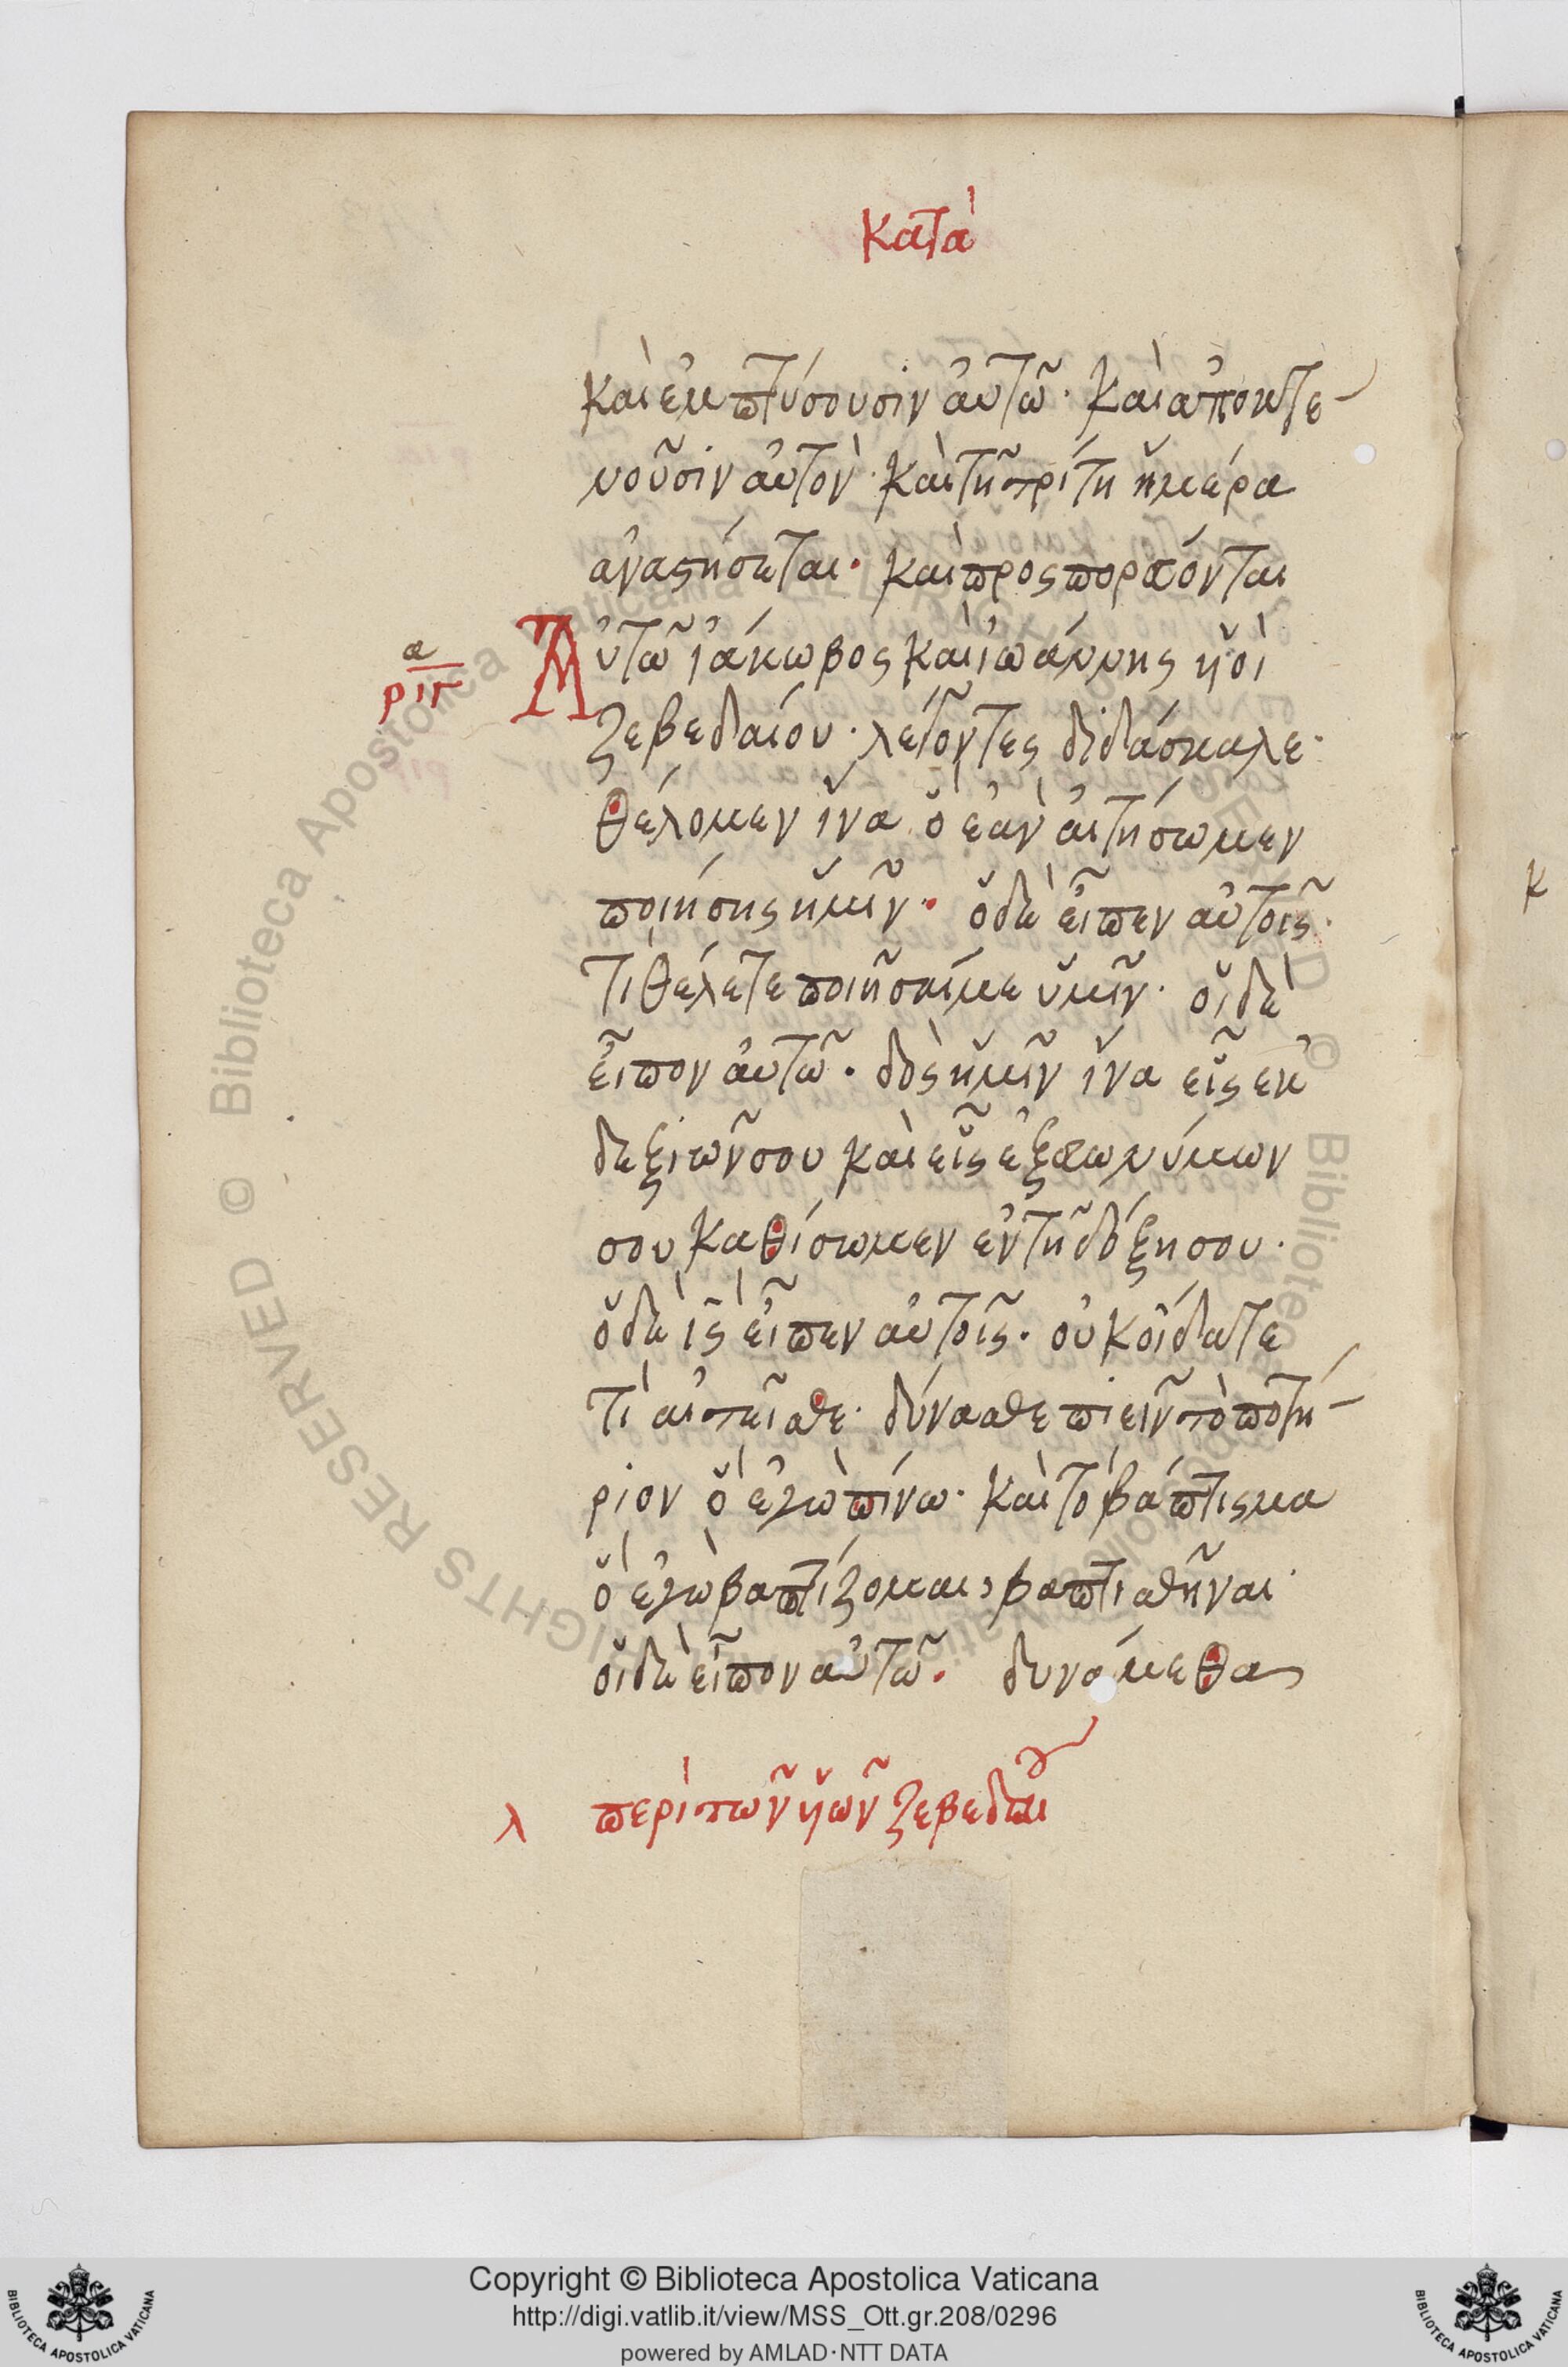 κατὰ
καὶ ἐμπτύσουσιν ἀυτῶ· καὶ ἀποκτε
νοῦσιν ἀυτὸν· καὶ τῆ τρίτη ἡμέρα
ἀναστήσεται· καὶ προσπορεύονται
Ἀυτῶ ἰάκωβος καὶ ἰωάννης ὑοὶ
α
ριγ
ζεβεδαίου· λέγοντες διδάσκαλε·
θέλομεν ἵνα ὃ ἐὰν ἀιτήσωμεν
ποιήσης ἡμῖν· ὁ δὲ εἶπεν αὐτοῖς·
τί θέλετε ποιῆσαί με ὑμῖν· οἱ δὲ
εἶπον ἀυτῶ· δὸς ἡμῖν ἵνα εἷς ἐκ
δεξιῶν σου καὶ εἷς ἐξ ευωνύμων
σου καθίσωμεν ἐν τῆ δόξη σου·
ὁ δὲ ις εἶπεν αὐτοῖς· οὐκ οἴδατε
τί αἰτεῖσθε· δύνασθε πιεῖν τὸ ποτή
ριον ὃ ἐγὼ πίνω· καὶ τὸ βάπτισμα
ὃ ἐγὼ βαπτίζομαι, βαπτισθῆναι·
οἱ δὲ εἶπον αὐτῶ· δυνάμεθα
λ περὶ τῶν ὑῶν ζεβεδαίου
κ
© Biblioteca Apostolica Vaticana ALL RIGHTS RESERVED
Copyright © Biblioteca Apostolica Vaticana
http://digi.vatlib.it/view/MSS_Ott.gr.208/0296
powered by AMLAD·NTT DATA
BIBLIOTECA APOSTOLICA VATICANA
BIBLIOTECA APOSTOLICA VATICANA